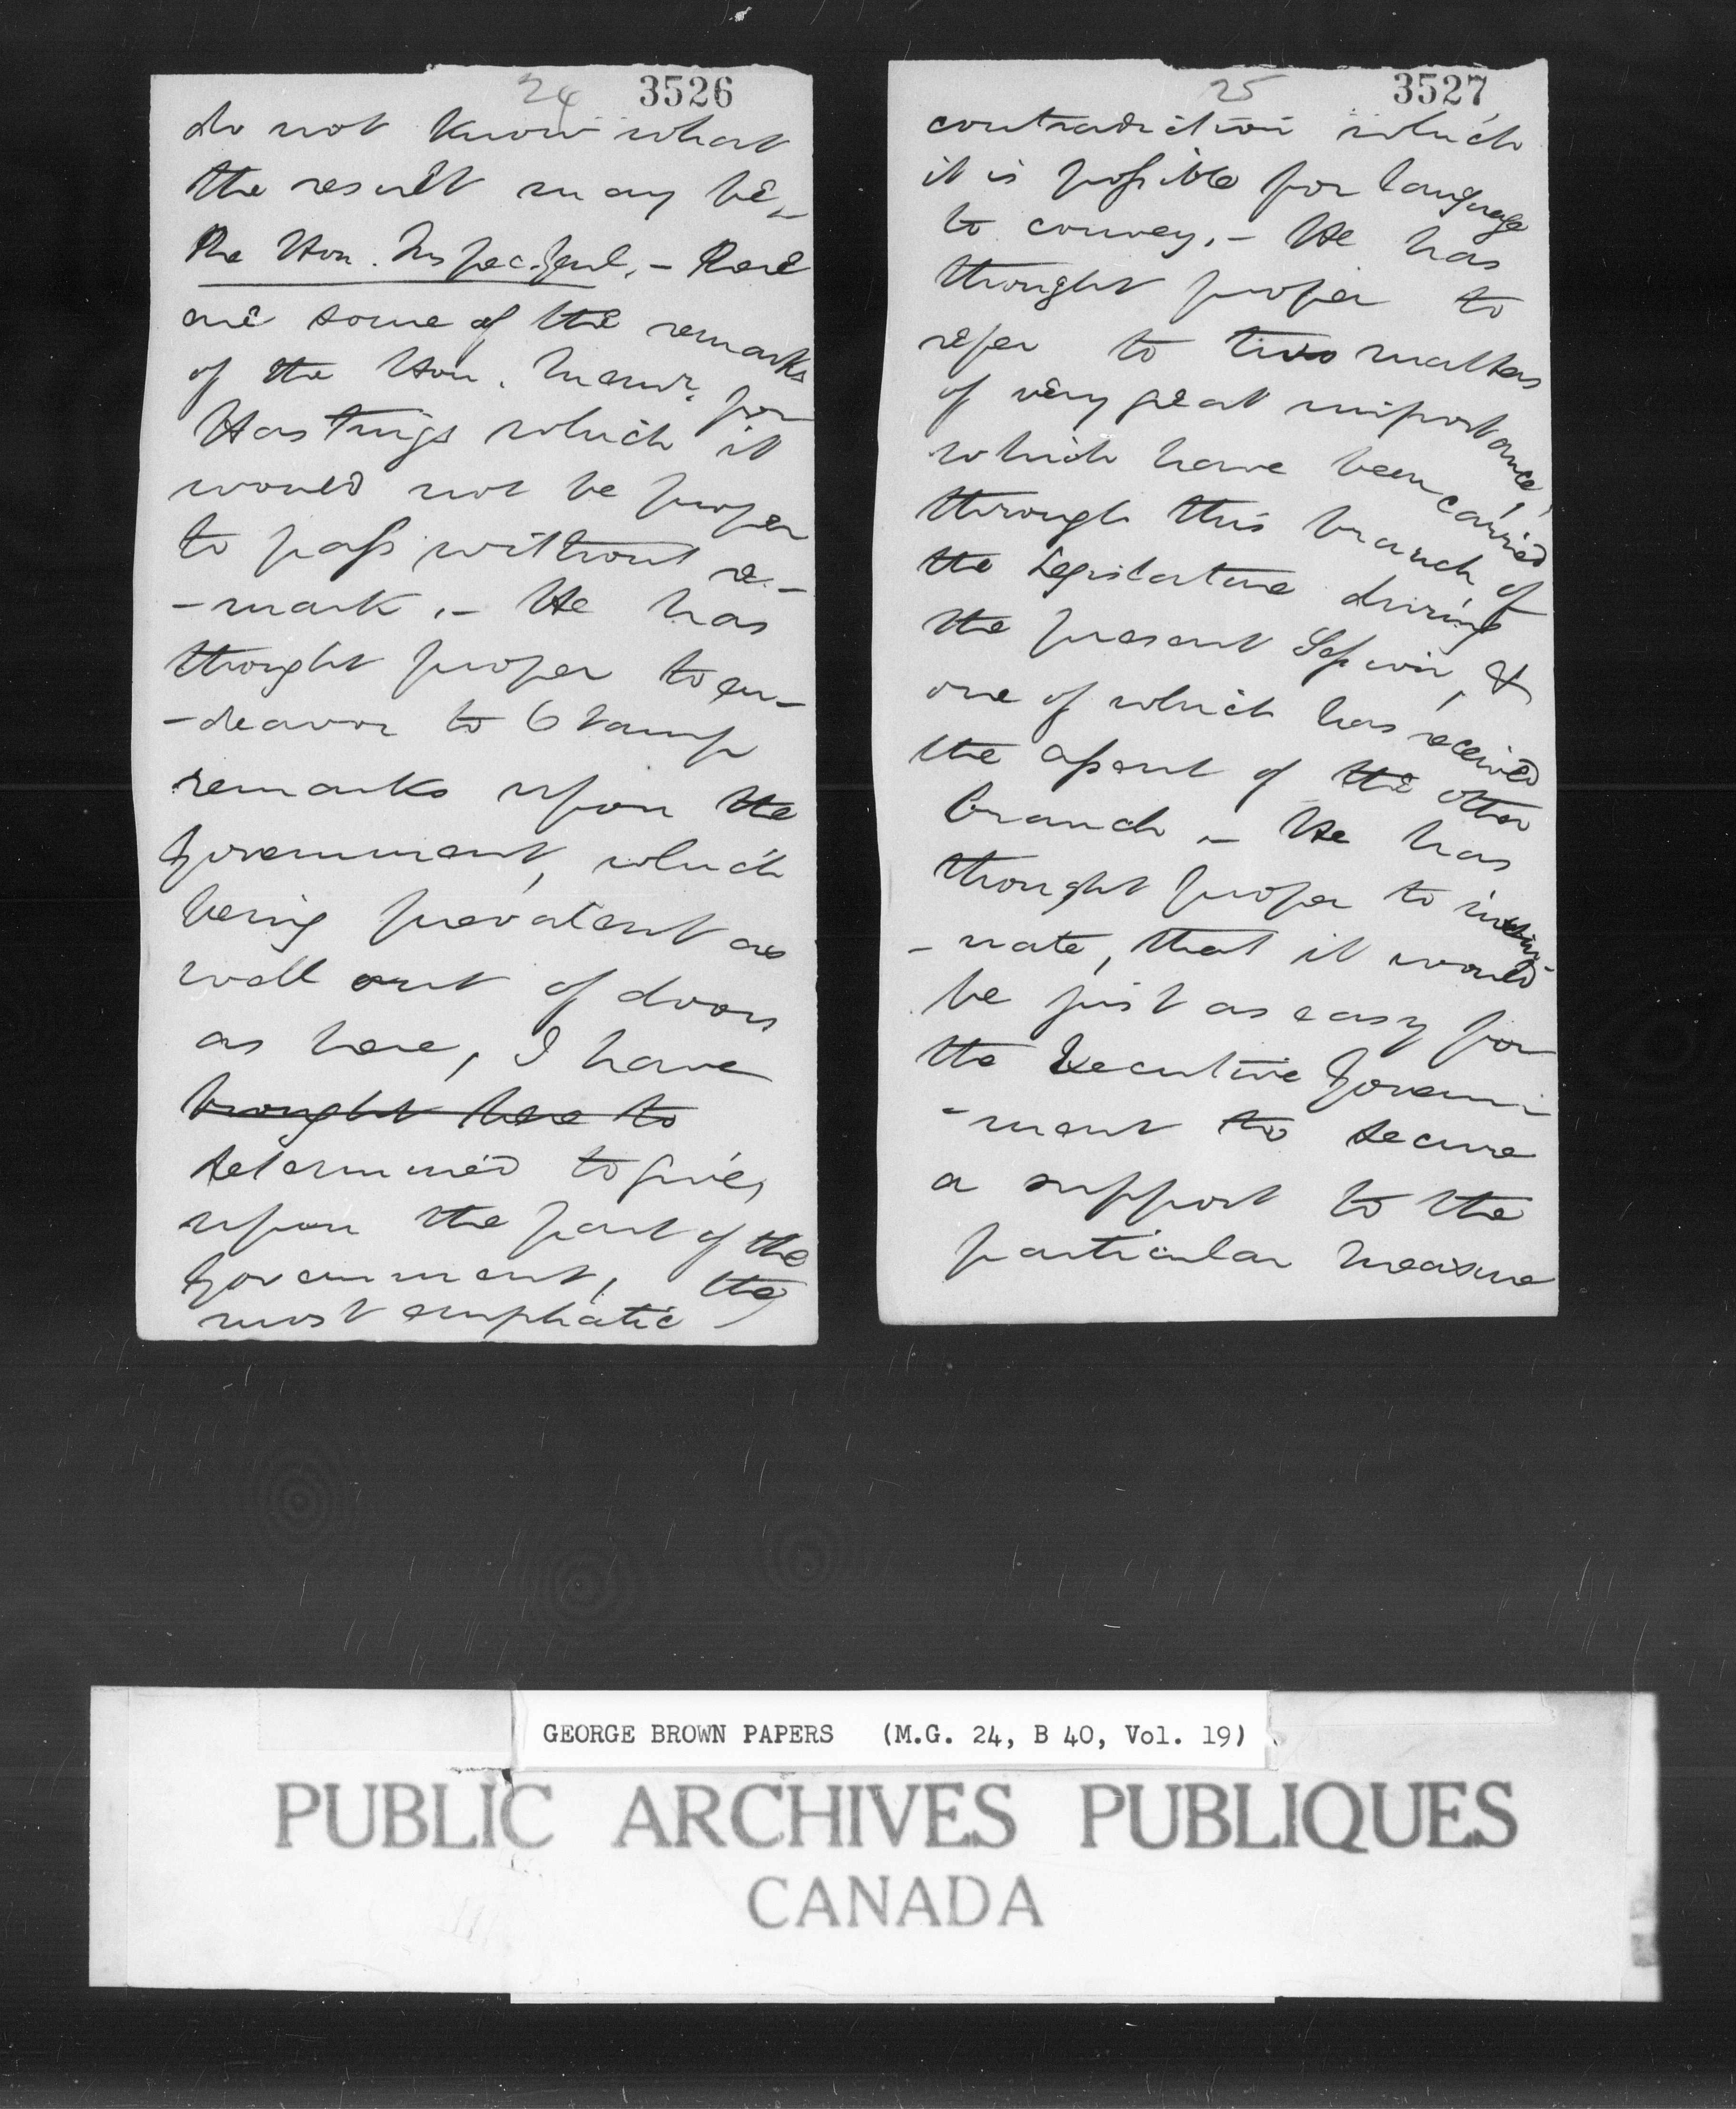 24 3526
do not know what
the result may be. -
The Hon. Inspec. Genl. - There
are some of the remarks
of the Hon. Memr. for
Hastings which it
would not be proper
to pass without re-
-mark. - He has
thought proper to en-
-deavor to stamp
remarks upon the
Government, which
being prevalent as
well out of doors
as here, I have
brought here to
determined to give,
upon the part of the
Government, the
most emphatic
25 3527
contradiction which
it is possible for language
to convey. - He has
thought proper to
refer to two matters
of very great importance,
which have been carried
through this branch of
the Legislature during
the present Session, &
one of which has received
the assent of the other
branch - He has
thought proper to insin-
-nate, that it would
be just as easy for
the Executive Govern-
-ment to secure
a support to the
particular measure
GEORGE BROWN PAPERS (M.G. 24, B 40, Vol. 19)
PUBLIC ARCHIVES PUBLIQUES
CANADA